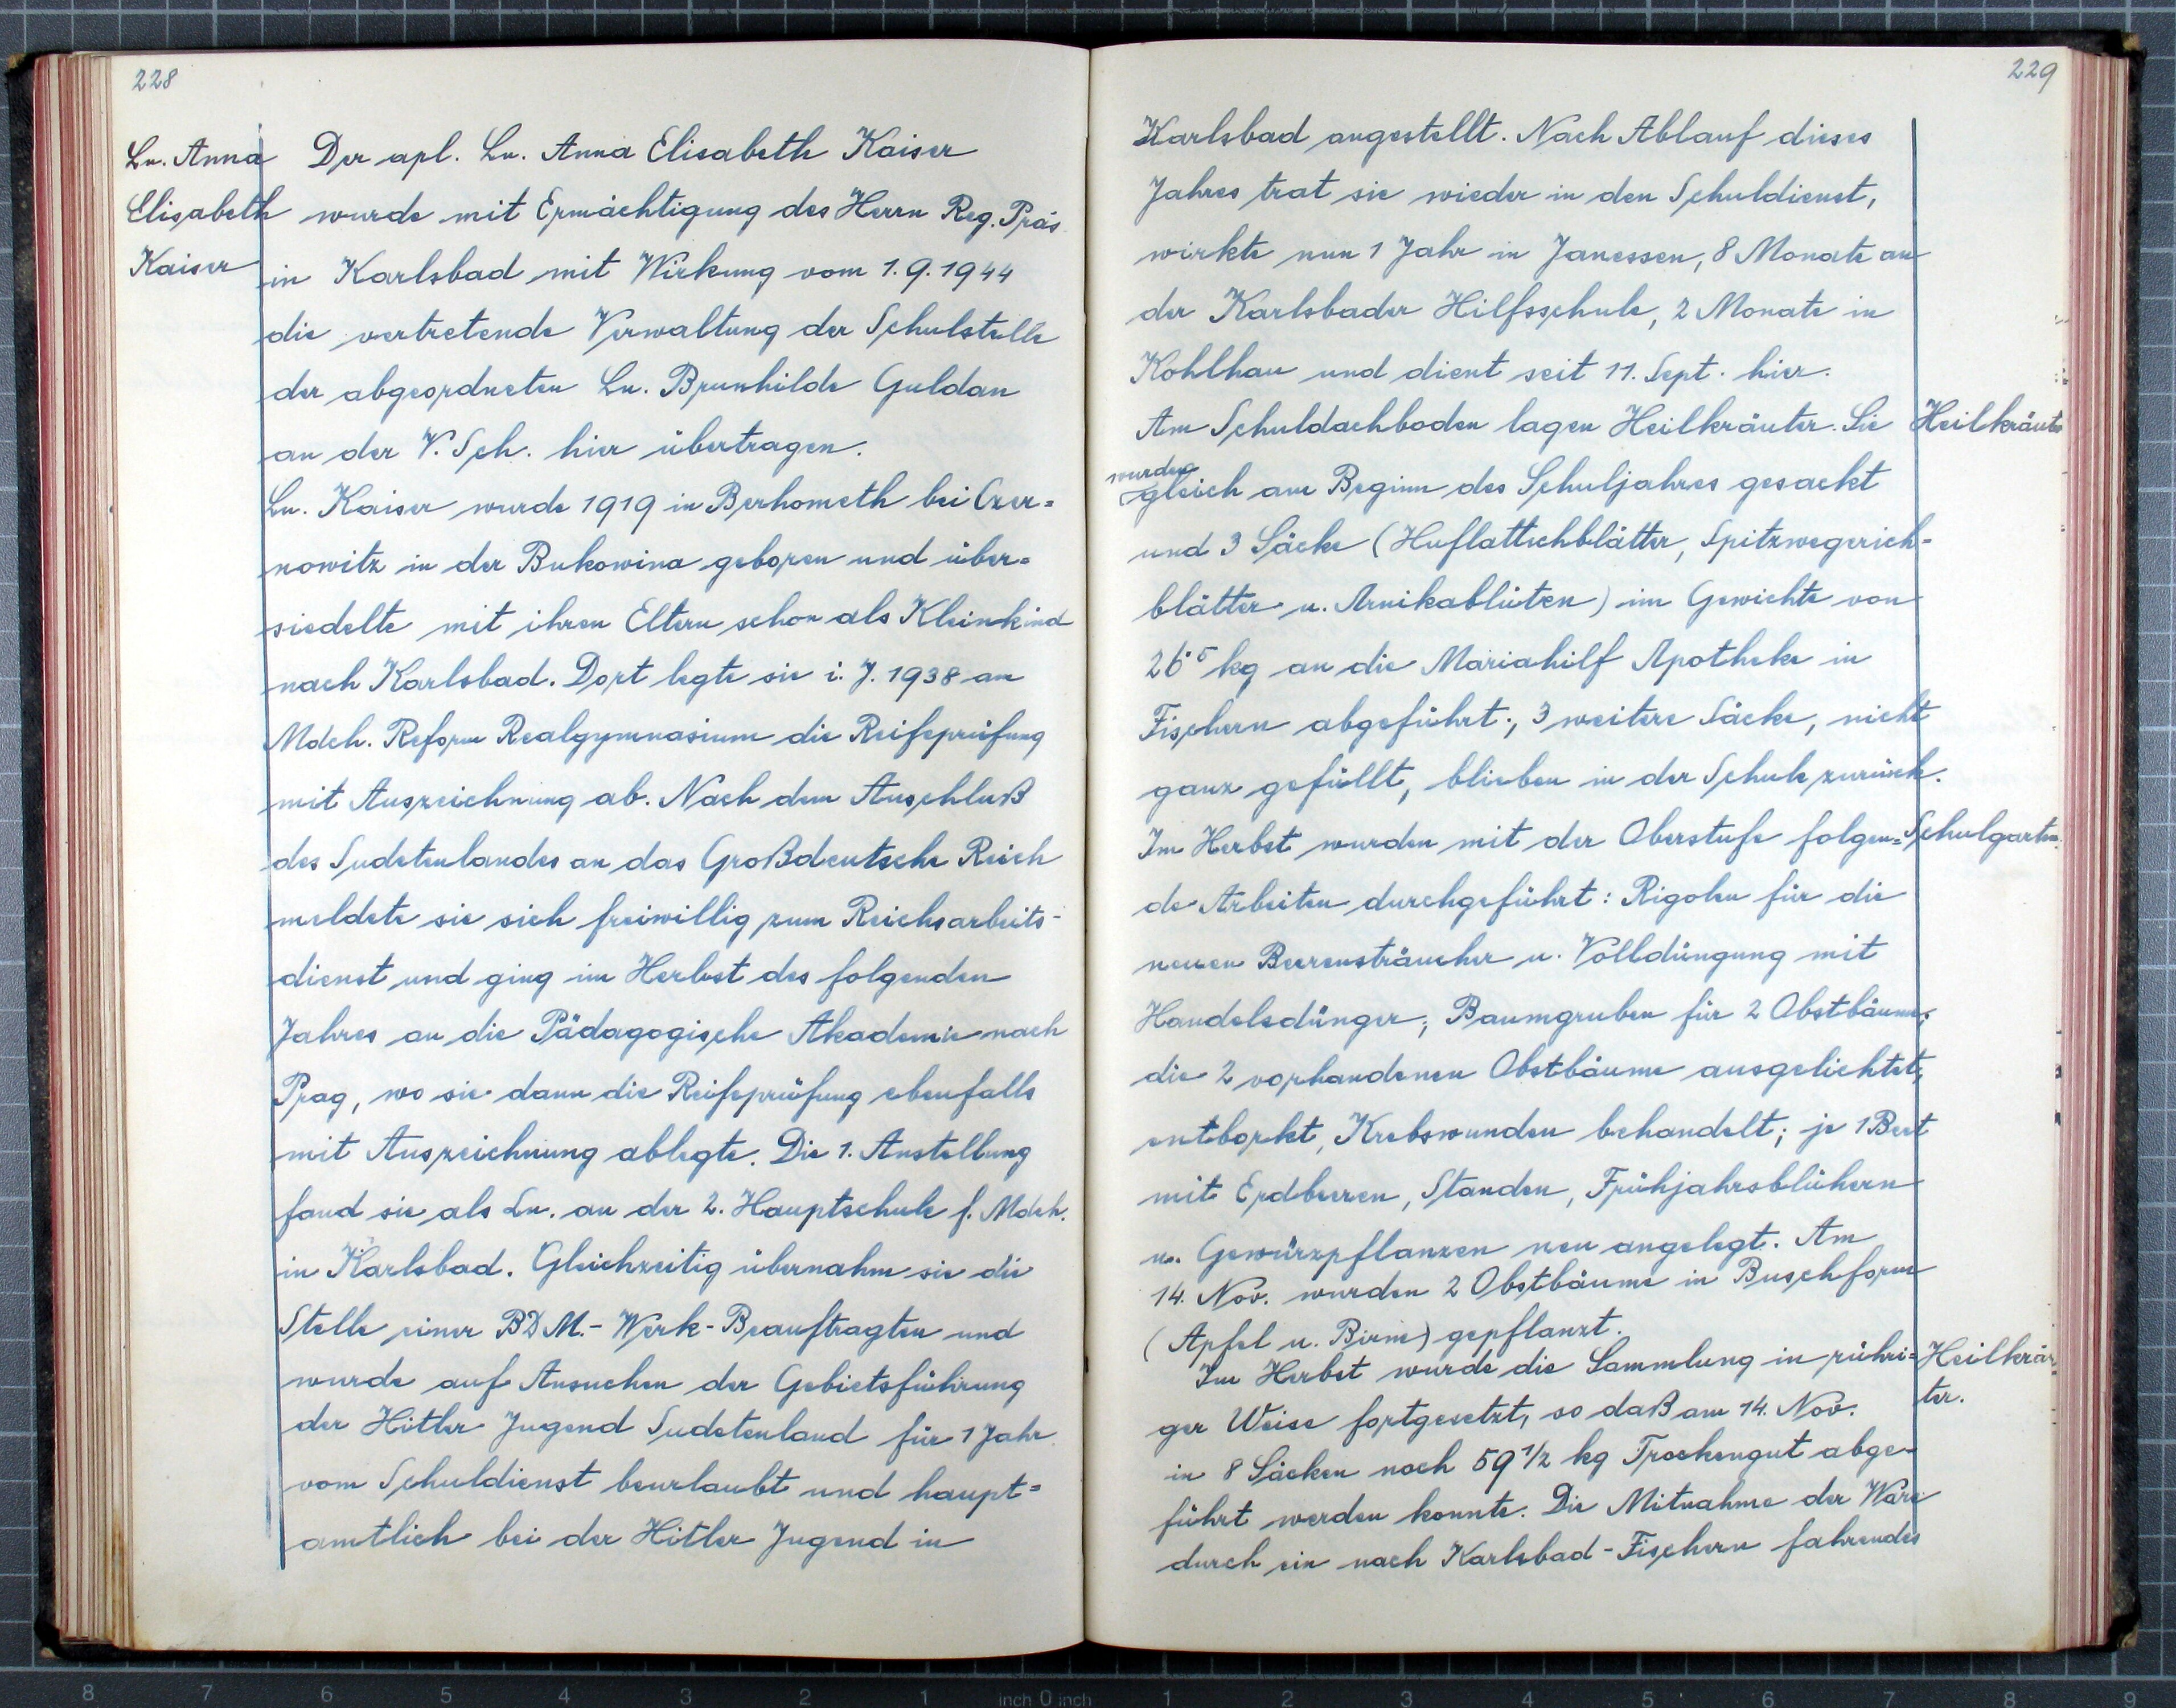 228
Ln. Anna
Elisabeth
Kaiser
Der apl. Ln. Anna Elisabeth Kaiser
wurde mit Ermächtigung des Herrn Reg. Präs
in Karlsbad mit Wirkung vom 1.9.1944
die vertretende Verwaltung der Schulstelle
der abgeordneten Ln. Brunhilde Guldan
an der V. Sch. hier übertragen.
Ln. Kaiser wurde 1919 in Berhometh bei Czer=
nowitz in der Bukowina geboren und über=
siedelte mit ihren Eltern schon als Kleinkind
nach Karlsbad. Dort legte sie i. J. 1938 am
Mdch. Reform Realgymnasium die Reifeprüfung
mit Auszeichnung ab. Nach dem Anschluß
des Sudetenlandes an das Großdeutsche Reich
meldete sie sich freiwillig zum Reichsarbeits-
dienst und ging im Herbst des folgenden
Jahres an die Pädagogische Akademie nach
Prag, wo sie dann die Reifeprüfung ebenfalls
mit Auszeichnung ablegte. Die 1. Anstellung
fand sie als Ln. an der 2. Hauptschule f. Mdch.
in Karlsbad. Gleichzeitig übernahm sie die
Stelle einer BDM.-Werk-Beauftragten und
wurde auf Ansuchen der Gebietsführung
der Hitler Jugend Sudetenland für 1 Jahr
vom Schuldienst beurlaubt und haupt=
amtlich bei der Hitler Jugend in
229
Karlsbad angestellt. Nach Ablauf dieses
Jahres trat sie wieder in den Schuldienst,
wirkte nun 1 Jahr in Janessen, 8 Monate an
der Karlsbader Hilfsschule, 2 Monate in
Kohlhau und dient seit 11. Sept. hier.
Am Schuldachboden lagen Heilkräuter. Sie
Heilkräuter
wurden
gleich am Beginn des Schuljahres gesackt
und 3 Säcke (Huflattichblätter, Spitzwegerich-
blätter u. Arnikablüten) im Gewichte von
26·5 kg an die Mariahilf Apotheke in
Fischern abgeführt; 3 weitere Säcke, nicht
ganz gefüllt, blieben in der Schule zurück.
Im Herbst wurden mit der Oberstufe folgen=
Schulgarten
de Arbeiten durchgeführt: Rigolen für die
neuen Beerensträucher u. Volldüngung mit
Handelsdünger; Baumgruben für 2 Obstbäume;
die 2 vorhandenen Obstbäume ausgelichtet,
entborkt, Krebswunden behandelt; je 1 Beet
mit Erdbeeren, Stauden, Frühjahrsblühern
u. Gewürzpflanzen neu angelegt. Am
14. Nov. wurden 2 Obstbäume in Buschform
(Apfel u. Birne) gepflanzt.
Im Herbst wurde die Sammlung in rühri=
Heilkräu
ter.
ger Weise fortgesetzt, so daß am 14. Nov.
in 8 Säcken noch 59 1/2 kg Trockengut abge-
führt werden konnte. Die Mitnahme der Ware
durch ein nach Karlsbad-Fischern fahrendes
8 7 6 5 4 3 2 1 inch 0 inch 1 2 3 4 5 6 7 8 9